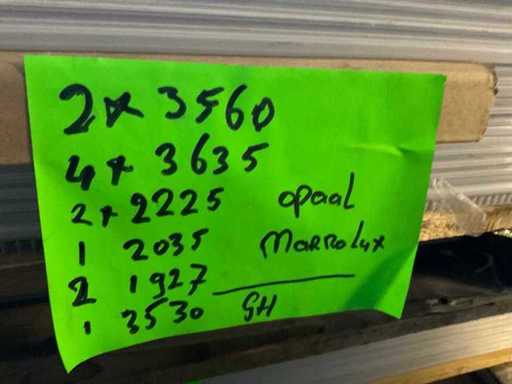 2 x 3560
4 x 3635
2 x 2225
1 2035
2 1927
1 3530
opaal
Marrolux
GH